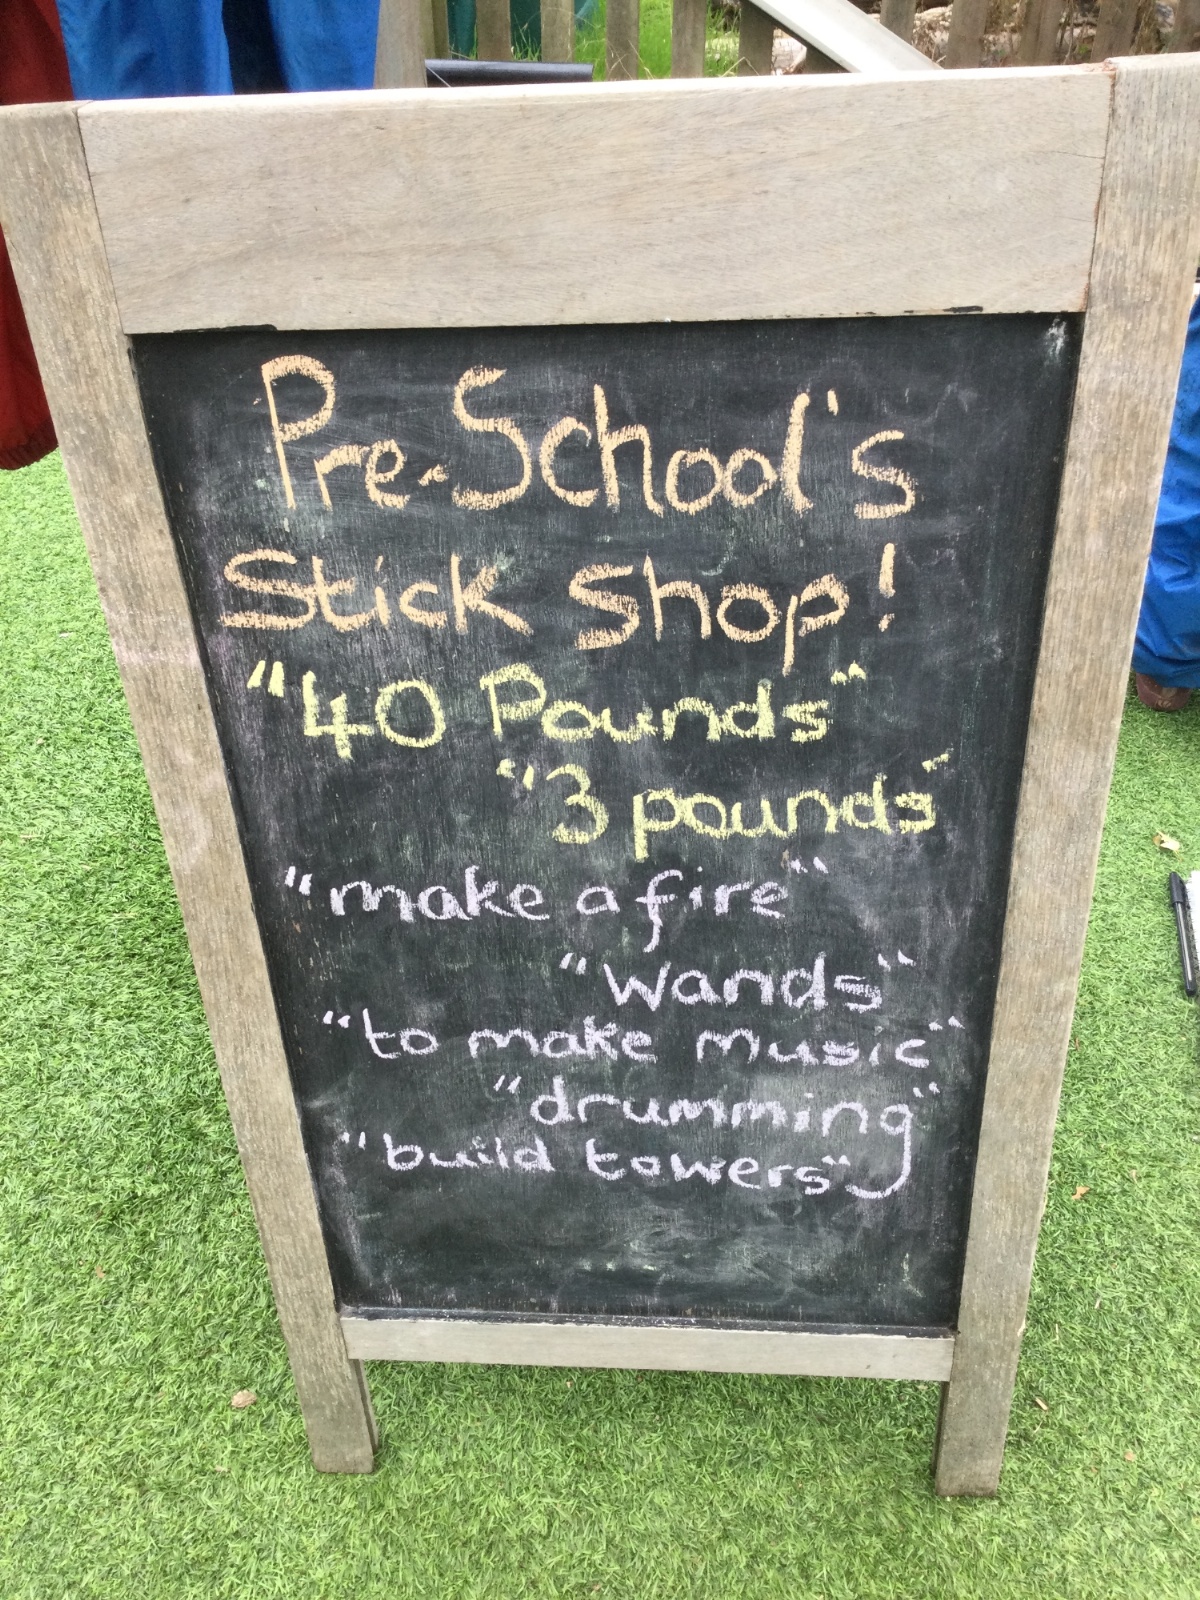 Pre-School's
Stick Shop!
"40 Pounds"
"3 pounds"
"make a fire"
"wands"
"to make music"
"drumming"
"build towers"